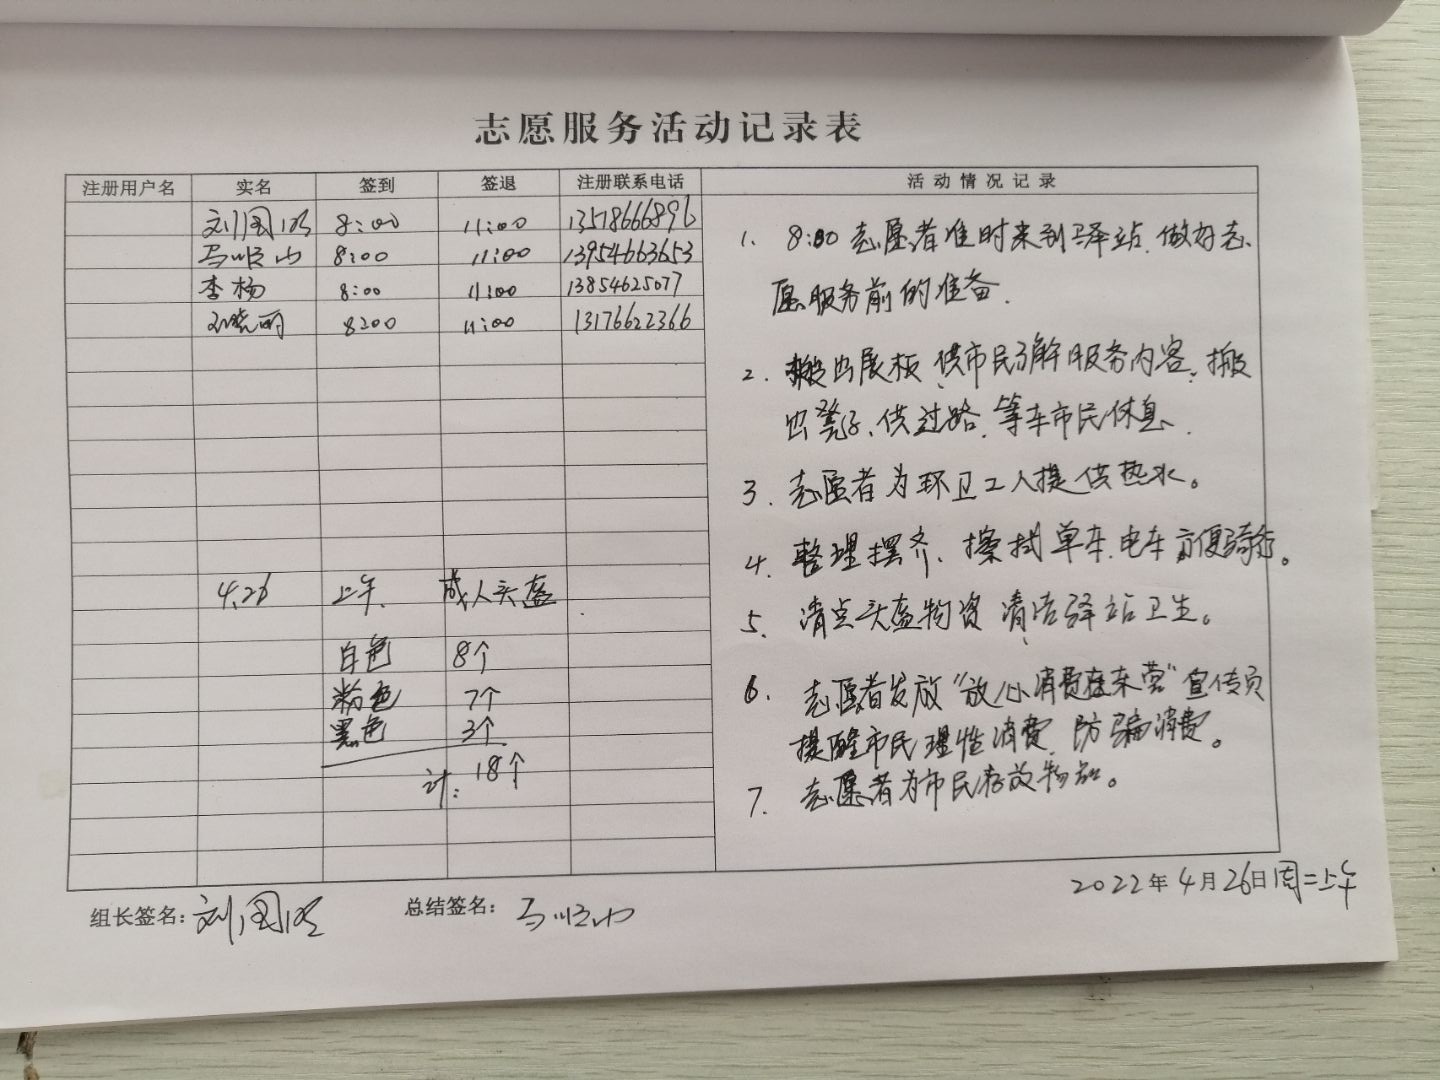 志愿服务活动记录表
注册用户名 实名 签到 签退 注册联系电话 活动情况记录
刘国 8:00 11:00 13578666896
马顺山 8:00 11:00 13954663653
李杨 8:00 11:00 13854625077
刘晓丽 8:00 11:00 13176622366
4.26 上午. 成人头盔
白色 8个
粉色 7个
黑色 3个
计: 18个
1. 8:00 志愿者准时来到驿站、做好志
愿服务前的准备.
2. 搬出展板、供市民了解服务内容、搬
出凳子、供过路、等车市民休息.
3. 志愿者为环卫工人提供热水。
4. 整理摆齐、擦拭单车、电车方便骑行。
5. 清点头盔物资、清洁驿站卫生。
6. 志愿者发放“放心消费在东营”宣传页
提醒市民理性消费、防骗消费。
7. 志愿者为市民存放物品。
2022年4月26日周二上午
组长签名: 刘国 总结签名: 马顺山